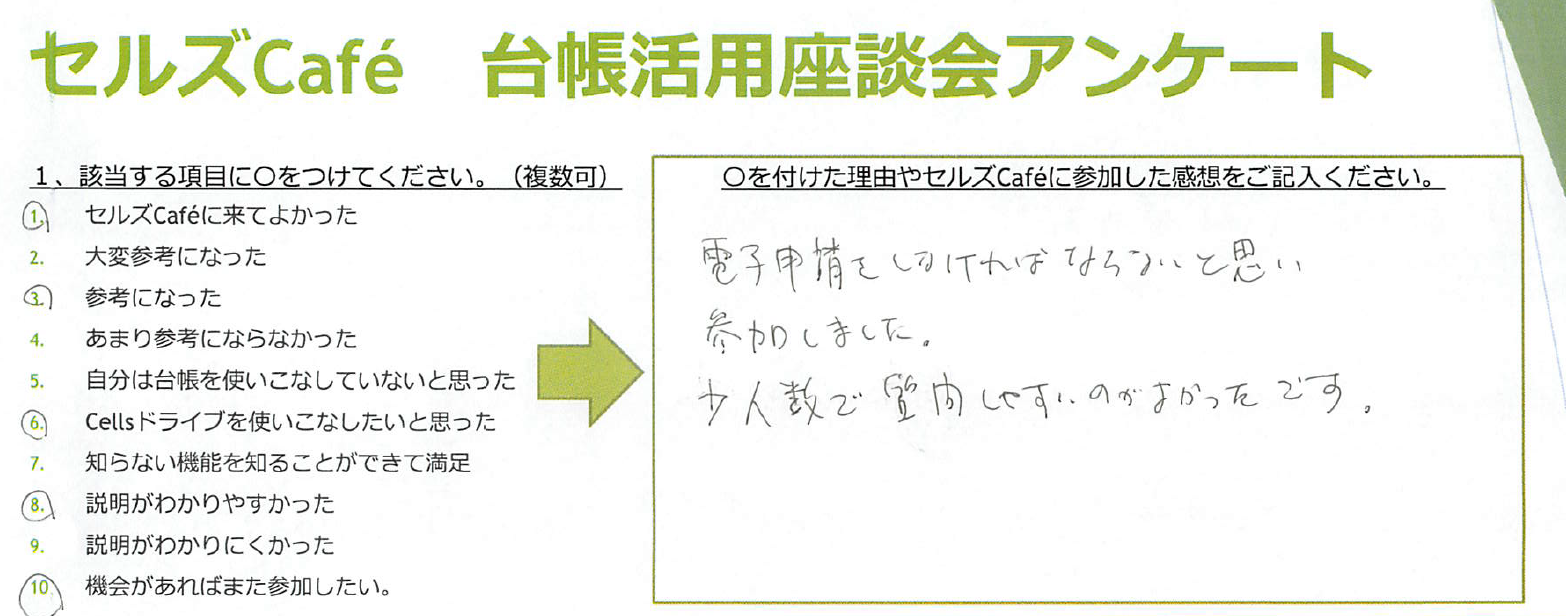 セルズCafé 台帳活用座談会アンケート
1、該当する項目に〇をつけてください。（複数可）
1. セルズCaféに来てよかった
2. 大変参考になった
3. 参考になった
4. あまり参考にならなかった
5. 自分は台帳を使いこなしていないと思った
6. Cellsドライブを使いこなしたいと思った
7. 知らない機能を知ることができて満足
8. 説明がわかりやすかった
9. 説明がわかりにくかった
10. 機会があればまた参加したい。
〇を付けた理由やセルズCaféに参加した感想をご記入ください。
電子申請をしなければならないと思い
参加しました。
少人数で質問しやすいのがよかったです。